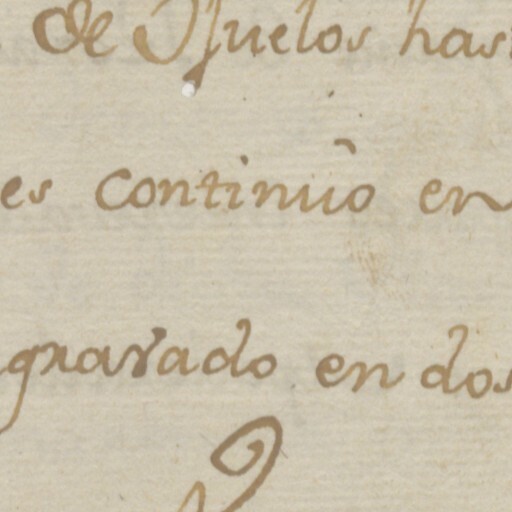 de Ojuelos has
es continuò en
gravado en dos